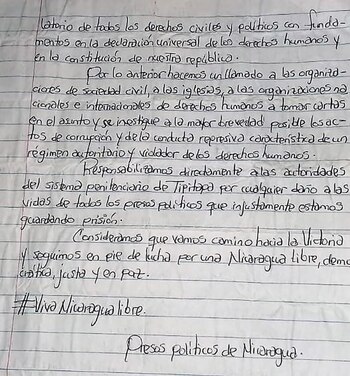 latorio de todos los derechos civiles y políticos con funda-
mentos en la declaración universal de los derechos humanos y
en la constitución de nuestra república.
Por lo anterior hacemos un llamado a las organiza-
ciones de sociedad civil, a las iglesias, a las organizaciones na
cionales e internacionales de derechos humanos a tomar cartas
en el asunto y se investigue a la mayor brevedad posible los ac-
tos de corrupción y de la conducta represiva característica de un
régimen autoritario y violador de los derechos humanos.
Responsabilizamos directamente a las autoridades
del sistema penitenciario de Tipitapa por cualquier daño a las
vidas de todos los presos políticos que injustamente estamos
guardando prisión.
Consideramos que vamos camino hacia la Victoria
y seguimos en pie de lucha por una Nicaragua libre, demo
crática, justa y en paz.
#Viva Nicaragua libre.
Presos políticos de Nicaragua.